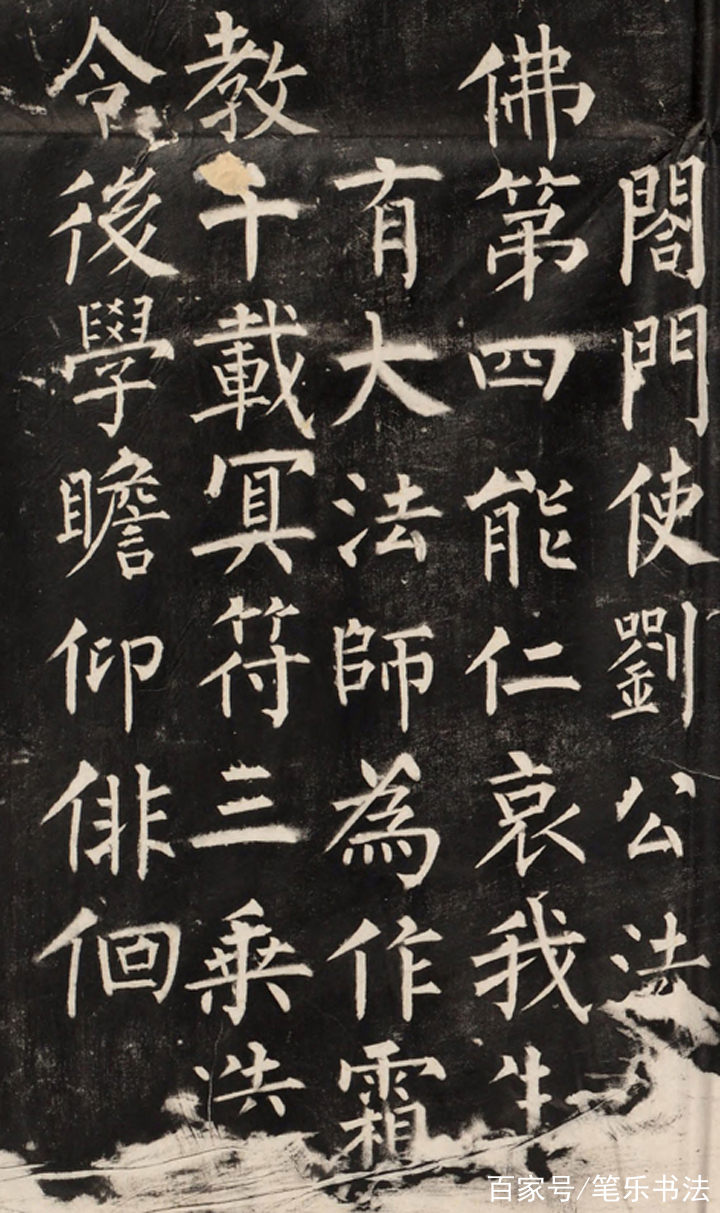 閤門使劉公法
佛第四能仁哀我
有大法師為作霜
教千載冥符三乘
令後學瞻仰俳佪
百家号/笔乐书法